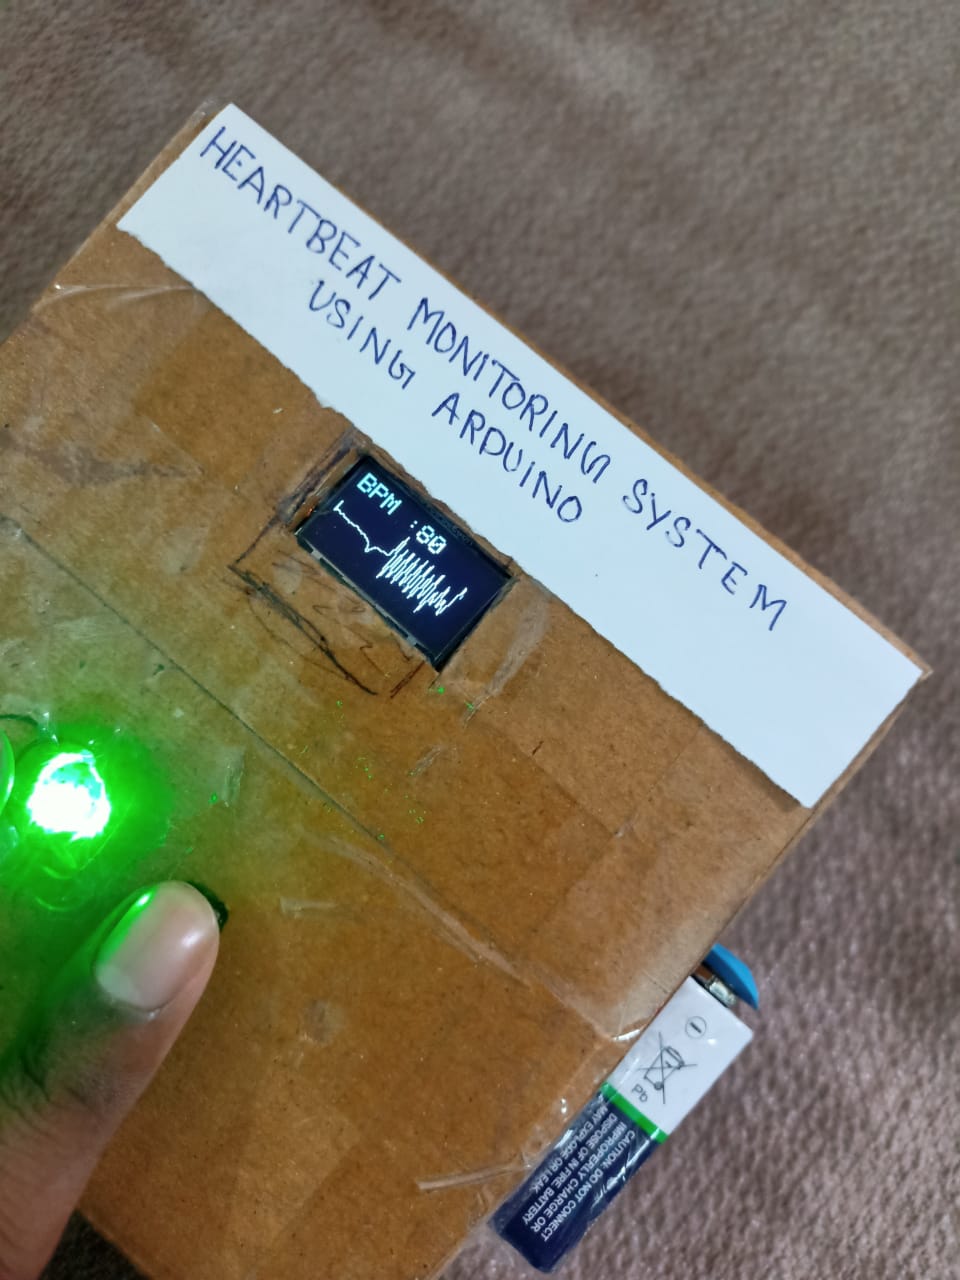 HEARTBEAT MONITORING SYSTEM
USING ARDUINO
BPM :80
Pb
CAUTION: DO NOT CONNECT
IMPROPERLY CHARGE OR
DISPOSE OF IN FIRE BATTERY
MAY EXPLODE OR LEAK.